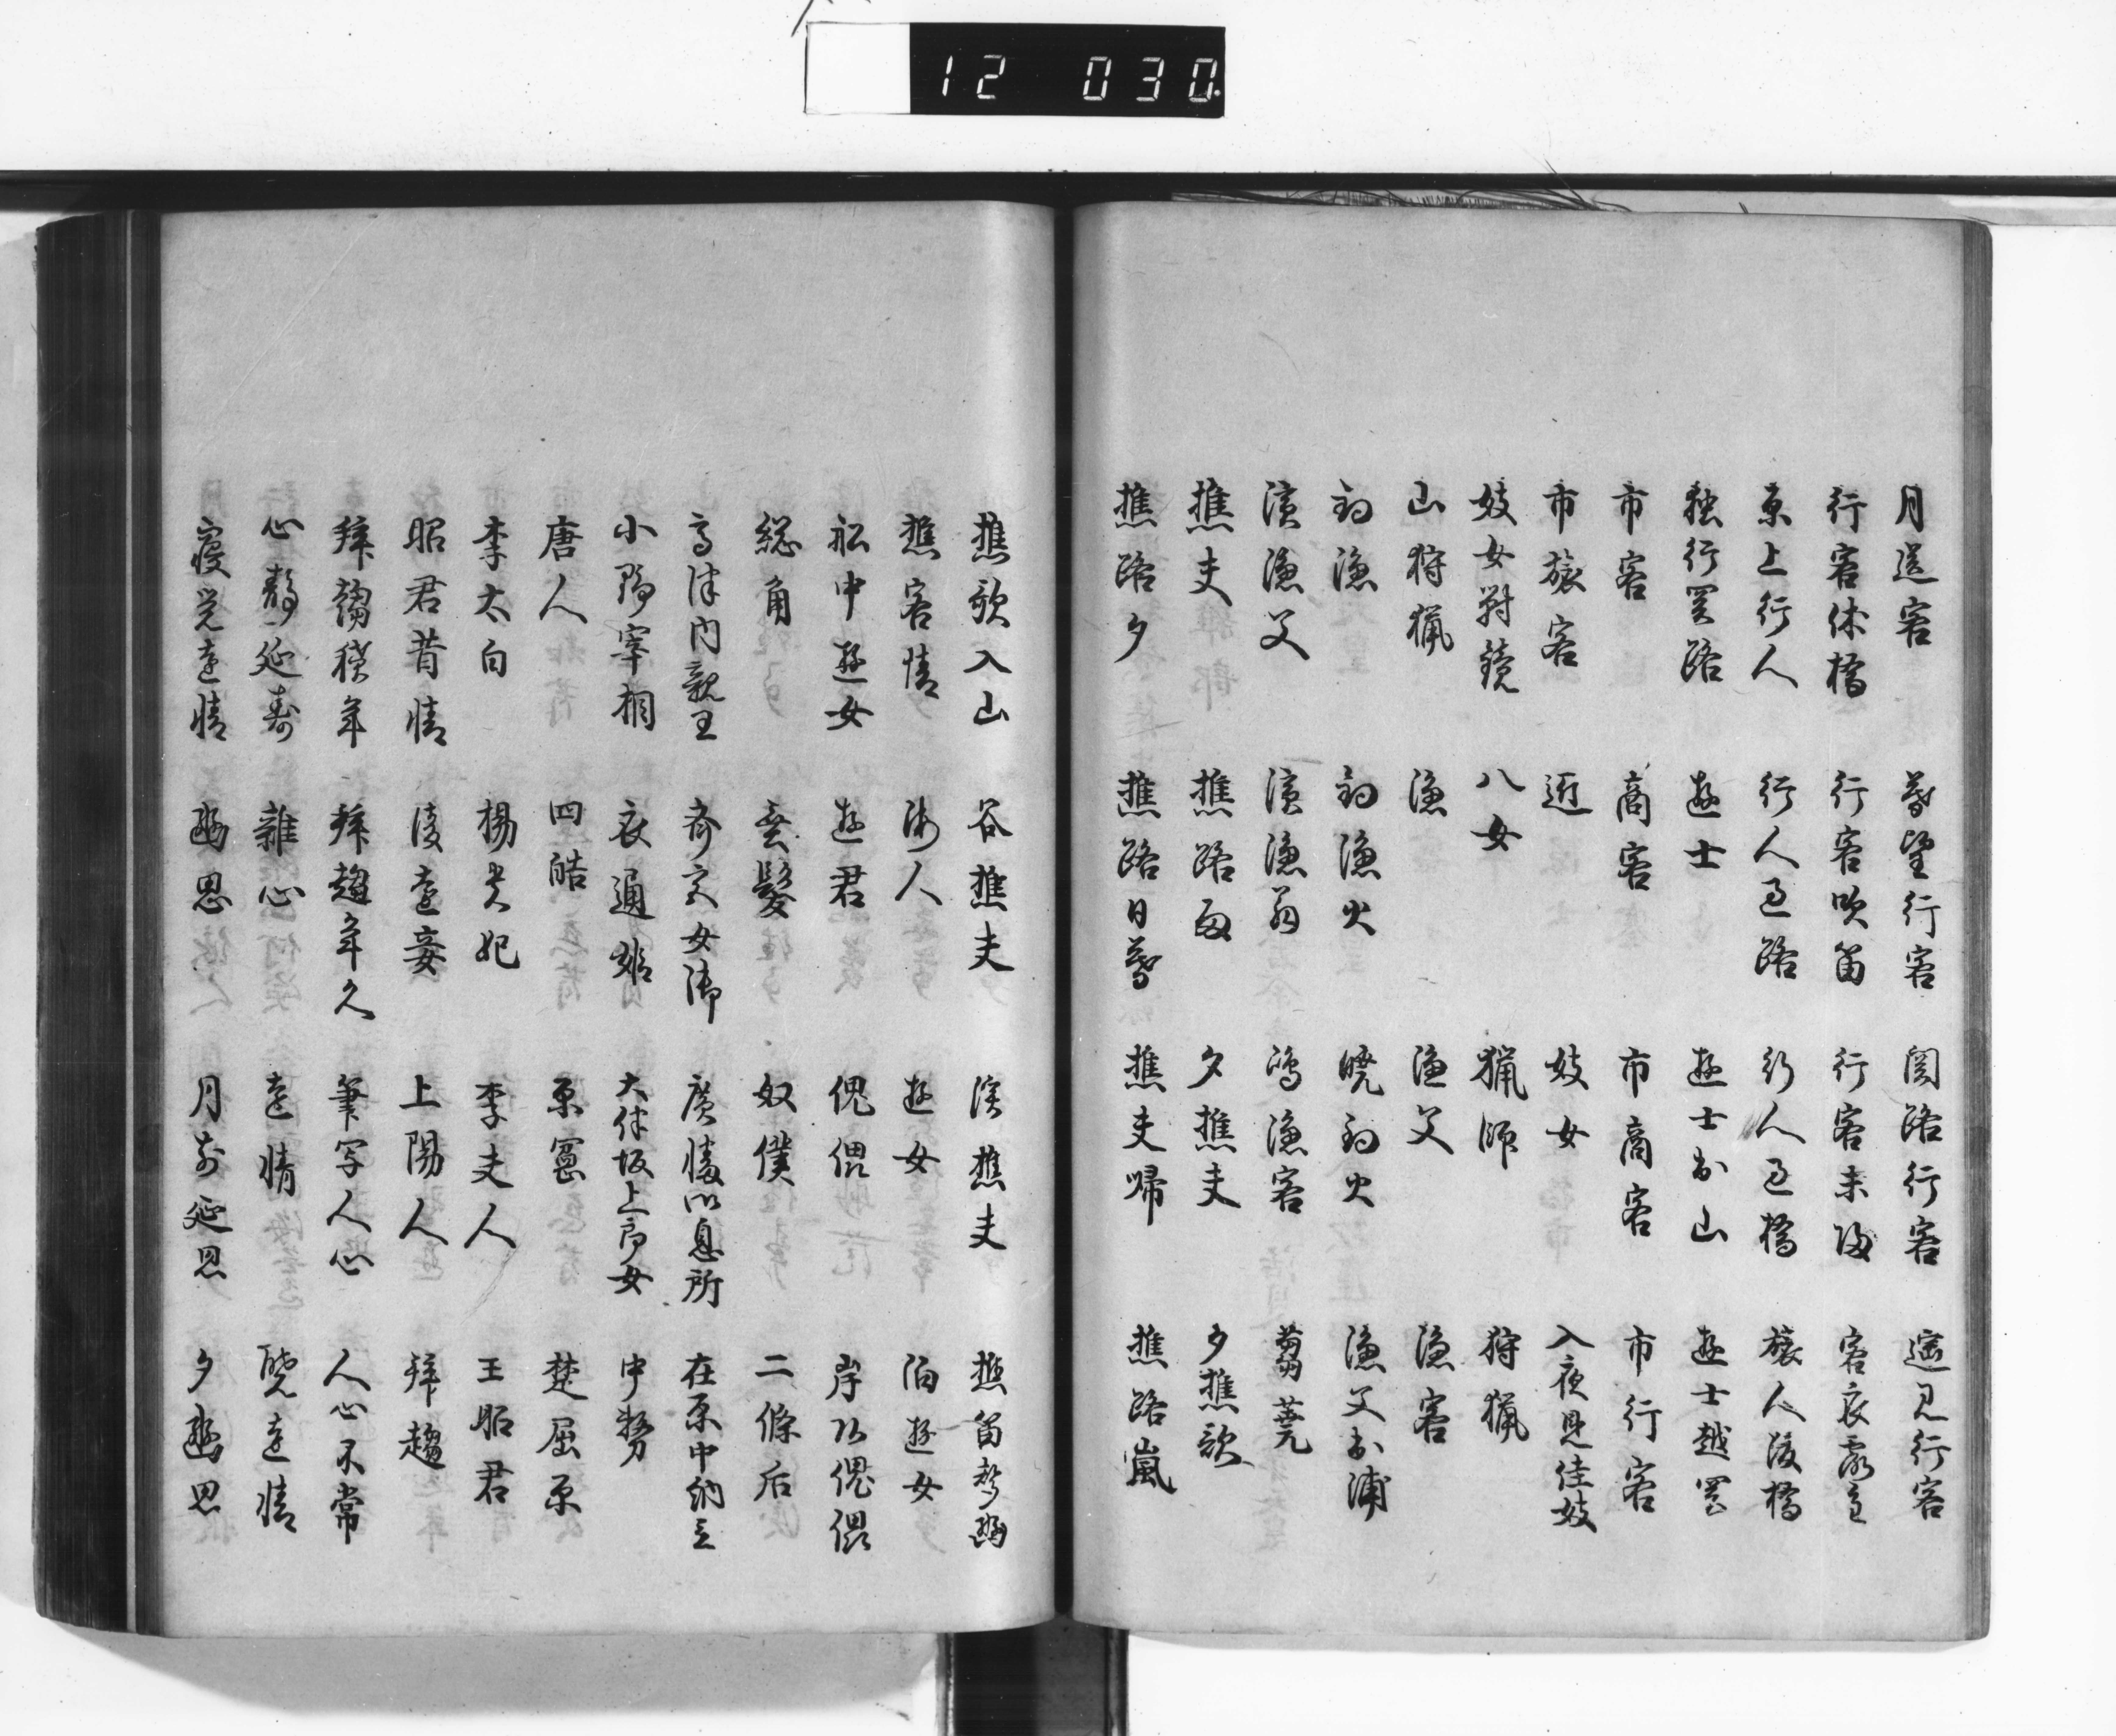 12 030
月送客 暮望行客 関路行客 遥見行客
行客休橋 行客吹笛 行客未帰 客衣露重
原上行人 行人過路 行人過橋 旅人渡橋
独行関路 遊士 遊士出山 遊士越関
市客 商客 市商客 市行客
市旅客 近 妓女 入夜見佳妓
妓女対鏡 八女 猟師 狩猟
山狩猟 漁 漁父 漁客
釣漁 釣漁火 暁釣火 漁父出浦
浜漁父 浜漁翁 漁客 蒭蕘
樵夫 樵路雨 夕樵夫 夕樵歌
樵路夕 樵路日暮 樵夫帰 樵路嵐
樵歌入山 谷樵夫 渓樵夫 樵笛声幽
樵客情 海人 遊女 泊遊女
船中遊女 遊君 傀儡 岸頭傀儡
総角 鬢髪 奴僕 二條后
高津内親王 斎宮女御 広幡御息所 在原中納言
小野宰相 衣通姫 大伴坂上郎女 中務
唐人 四皓 原憲 楚屈原
李太白 楊貴妃 李夫人 王昭君
昭君昔情 陵遠妾 上陽人 拝趨
拝趨積年 拝趨年久 筆写人心 人心不常
心静延寿 雑心 遠情 暁遠情
寝覚遠情 幽思 月前延思 夕幽思